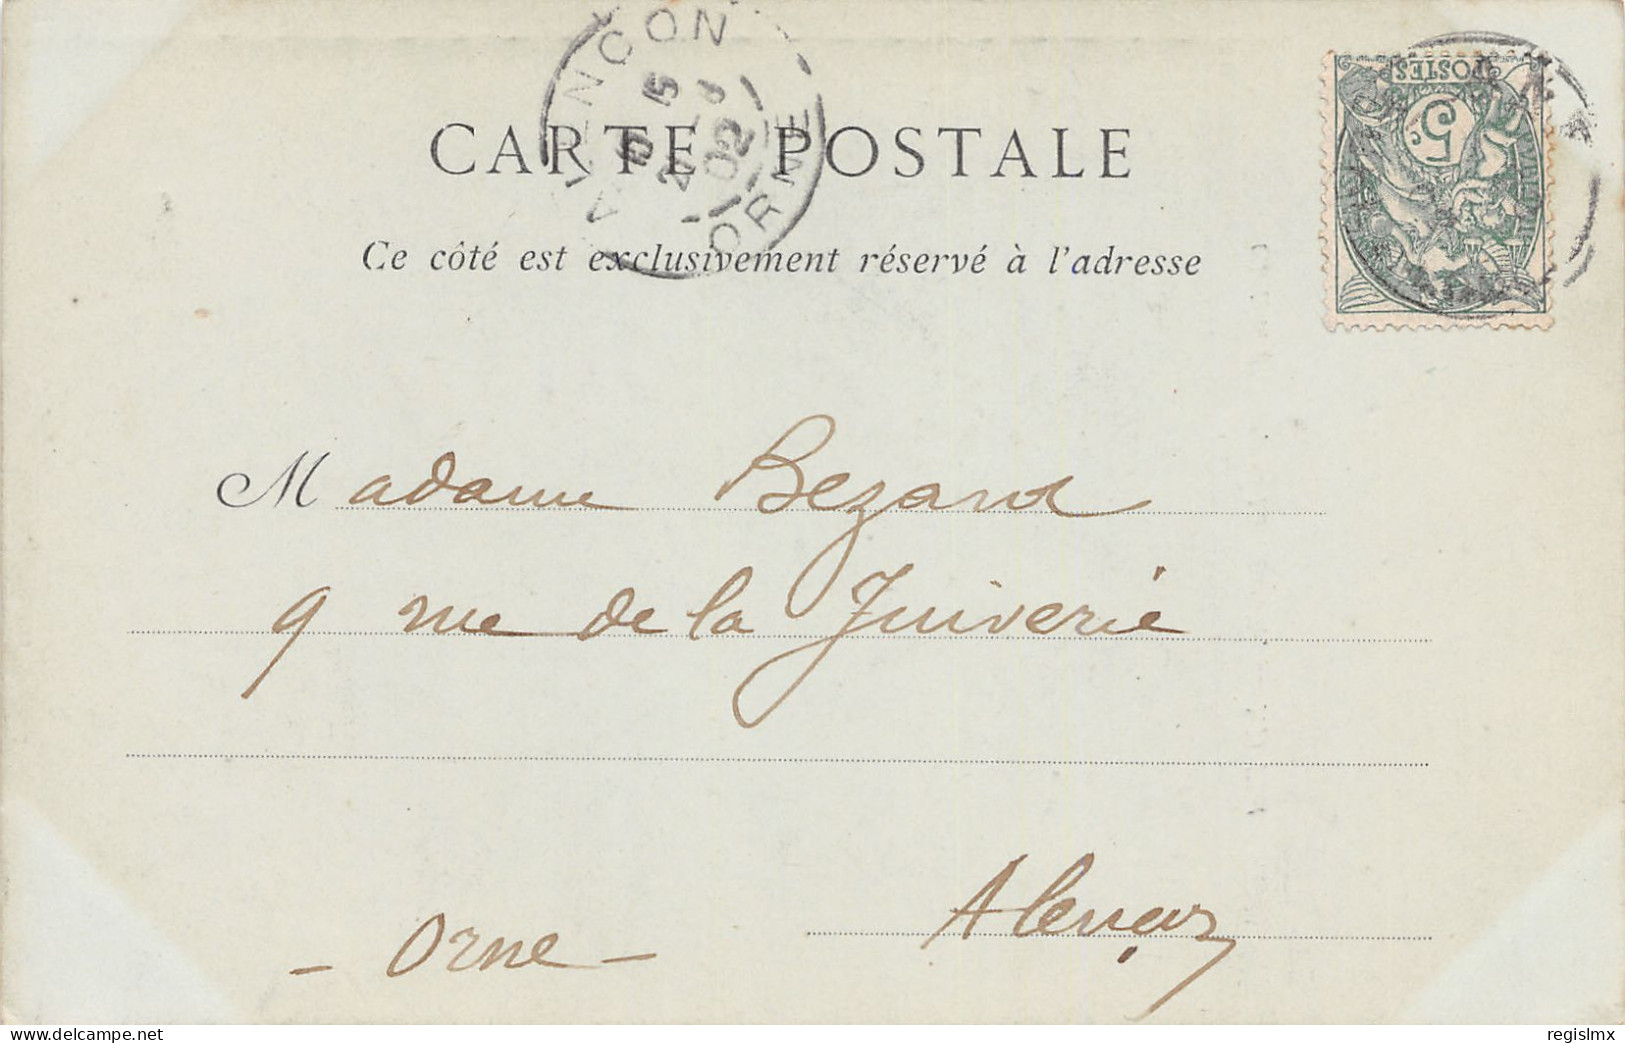 ALENÇON
ORNE
15
02
POSTES
5c
CARTE POSTALE
Ce côté est exclusivement réservé à l'adresse
Madame Bezard
9 rue de la Juiverie
Alençon
- Orne -
delcampe.net
regislmx